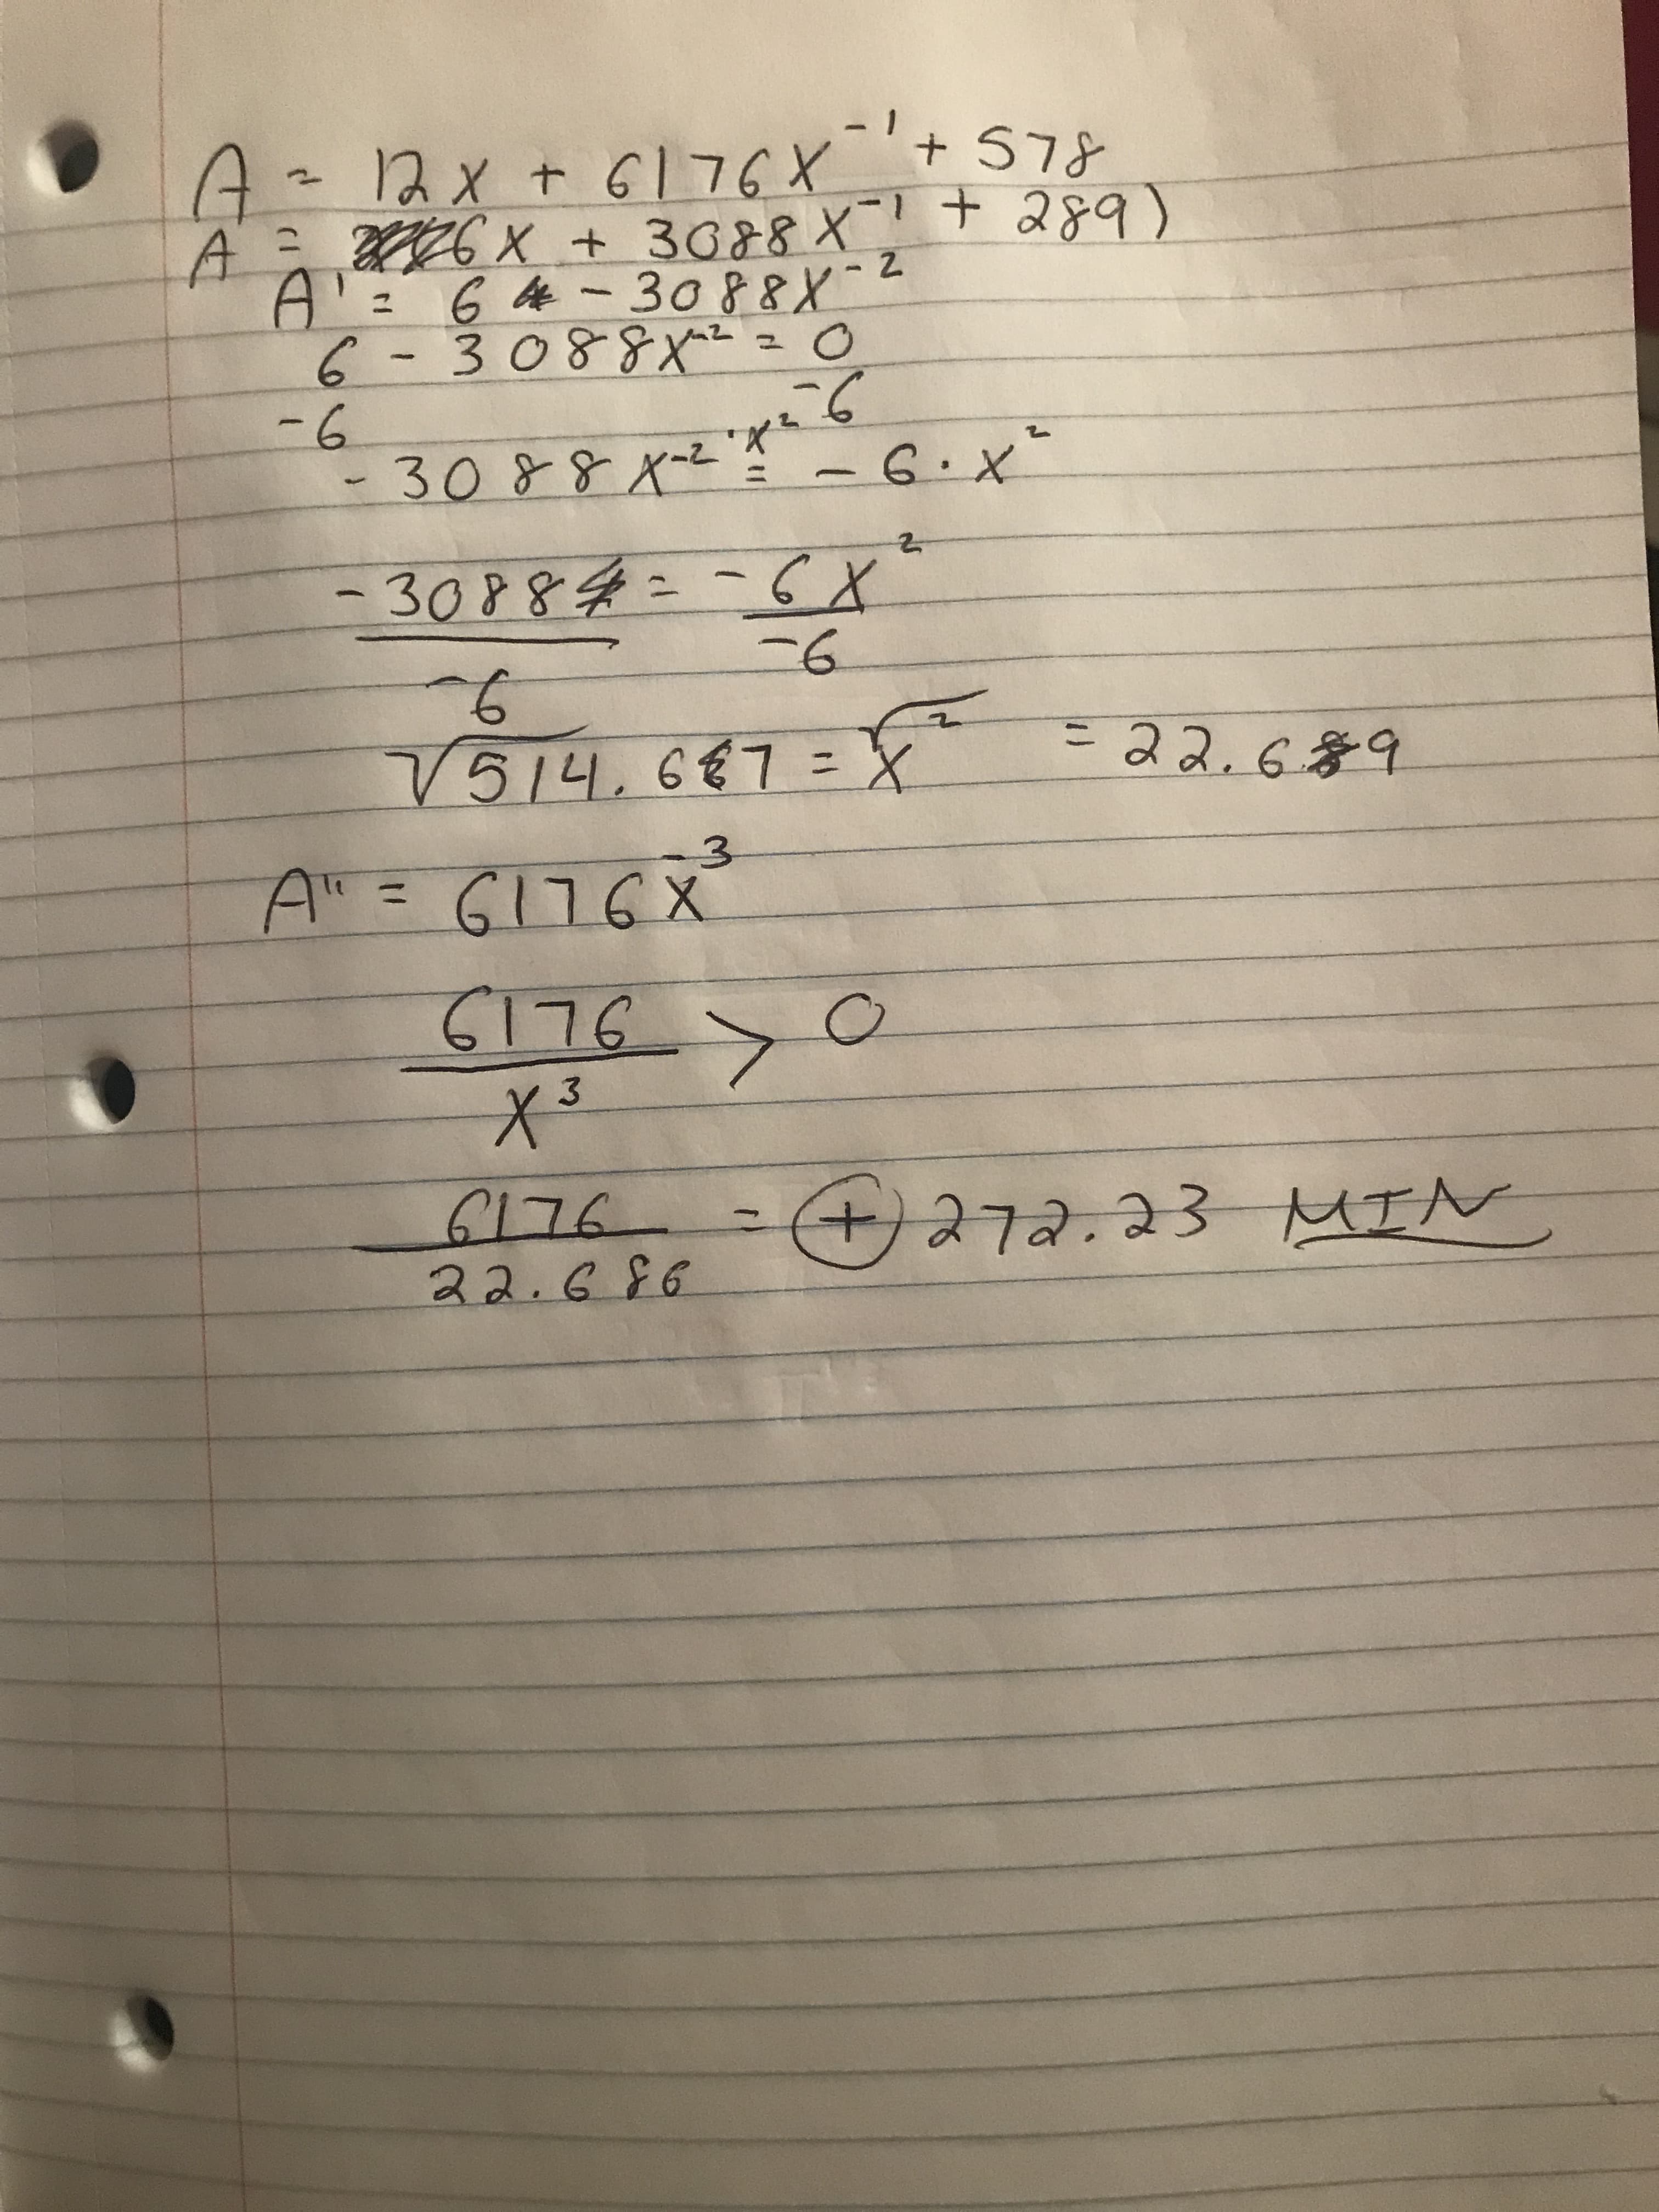 A = 12x + 6176x⁻¹ + 578
A = 6x + 3088x⁻¹ + 289)
A' = 6 - 3088x⁻²
6 - 3088x⁻² = 0
-6 -6
-3088x⁻² · x² = -6 · x²
-3088 = -6x²
-6 -6
√514.667 = √x² = 22.689
A" = 6176x⁻³
6176 > 0
x³
6176 = + 272.23 MIN
22.686